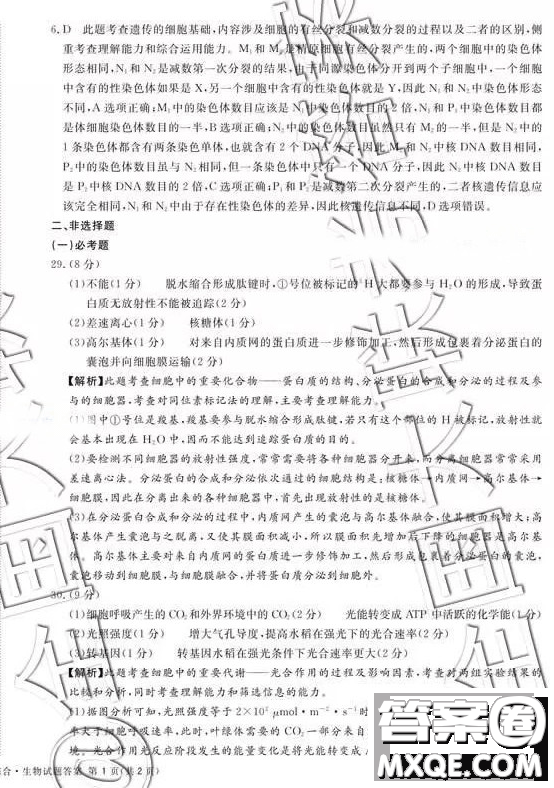 6. D 此题考查遗传的细胞基础,内容涉及细胞的有丝分裂和减数分裂的过程以及二者的区别,侧
重考查理解能力和综合运用能力。M₁和M₂是精原细胞有丝分裂产生的,两个细胞中的染色体
形态相同,N₁和N₂是减数第一次分裂的结果,由于同源染色体分开到两个子细胞中,一个细胞
中含有的性染色体如果是X,另一个细胞中含有的性染色体就是Y,因此N₁和N₂中染色体形态
不同,A选项正确;M₁中的染色体数目应该是N₁中染色体数目的2倍,N₁和P₁中染色体数目都
是体细胞染色体数目的一半,B选项正确;N₁中的染色体数目虽然只有M₂的一半,但是N₁中的
1条染色体都含有两条染色单体,也就含有2个DNA分子,因此M₁和N₁中核DNA数目相同,
P₂中的染色体数目虽与N₂相同,但一条染色体中只有一个DNA分子,因此N₂中核DNA数目
是P₂中核DNA数目的2倍,C选项正确;P₁和P₂是减数第二次分裂产生的,二者核遗传信息应
该完全相同,N₁和N₂中由于存在性染色体的差异,因此核遗传信息不同,D选项错误。
二、非选择题
(一)必考题
29. (8分)
(1)不能(1分) 脱水缩合形成肽键时,①号位被标记的³H大都要参与H₂O的形成,导致蛋
白质无放射性不能被追踪(2分)
(2)差速离心(1分) 核糖体(1分)
(3)高尔基体(1分) 对来自内质网的蛋白质进一步修饰加工,然后形成包裹着分泌蛋白的
囊泡并向细胞膜运输(2分)
【解析】此题考查细胞中的重要化合物——蛋白质的结构、分泌蛋白的合成和分泌的过程及参
与的细胞器,考查对同位素标记法的理解,主要考查理解能力。
(1)图中①号位是羧基,羧基要参与脱水缩合形成肽键,若只有这个部位的H被标记,放射性就
会基本出现在H₂O中,因而不能达到追踪蛋白质的目的。
(2)要检测不同细胞器的放射性强度,常常需要将各种细胞器分开来,而分离细胞器常常采用
差速离心法。分泌蛋白的合成和分泌依次通过的细胞结构是:核糖体→内质网→高尔基体→
细胞膜,因此在分离出来的各种细胞器中,首先出现放射性的是核糖体。
(3)在分泌蛋白合成和分泌的过程中,内质网产生的囊泡与高尔基体融合,使其膜面积增大;高
尔基体产生囊泡与之脱离,又使其膜面积减小,所以膜面积先增加后下降的细胞器是高尔基
体。高尔基体主要对来自内质网的蛋白质进一步修饰加工,然后形成包裹着分泌蛋白的囊泡,
囊泡移动到细胞膜,与细胞膜融合,并将蛋白质分泌到细胞外。
30. (9分)
(1)细胞呼吸产生的CO₂和外界环境中的CO₂(2分) 光能转变成ATP中活跃的化学能(1分)
(2)光照强度(1分) 增大气孔导度,提高水稻在强光下的光合速率(2分)
(3)转基因(1分) 转基因水稻在强光条件下光合速率更大(2分)
【解析】此题考查细胞中的重要代谢——光合作用的过程及影响因素,考查对两组实验结果的
比较和分析,同时考查理解能力和筛选信息的能力。
(1)据图分析可知,光照强度等于2×10² μmol·m⁻²·s⁻¹时
率大于细胞呼吸速率,此时,叶绿体需要的CO₂一部分来自
境。光合作用光反应阶段发生的能量变化是将光能转变成
综合·生物试题答案 第1页(共2页)
答案圈
MXQE.COM